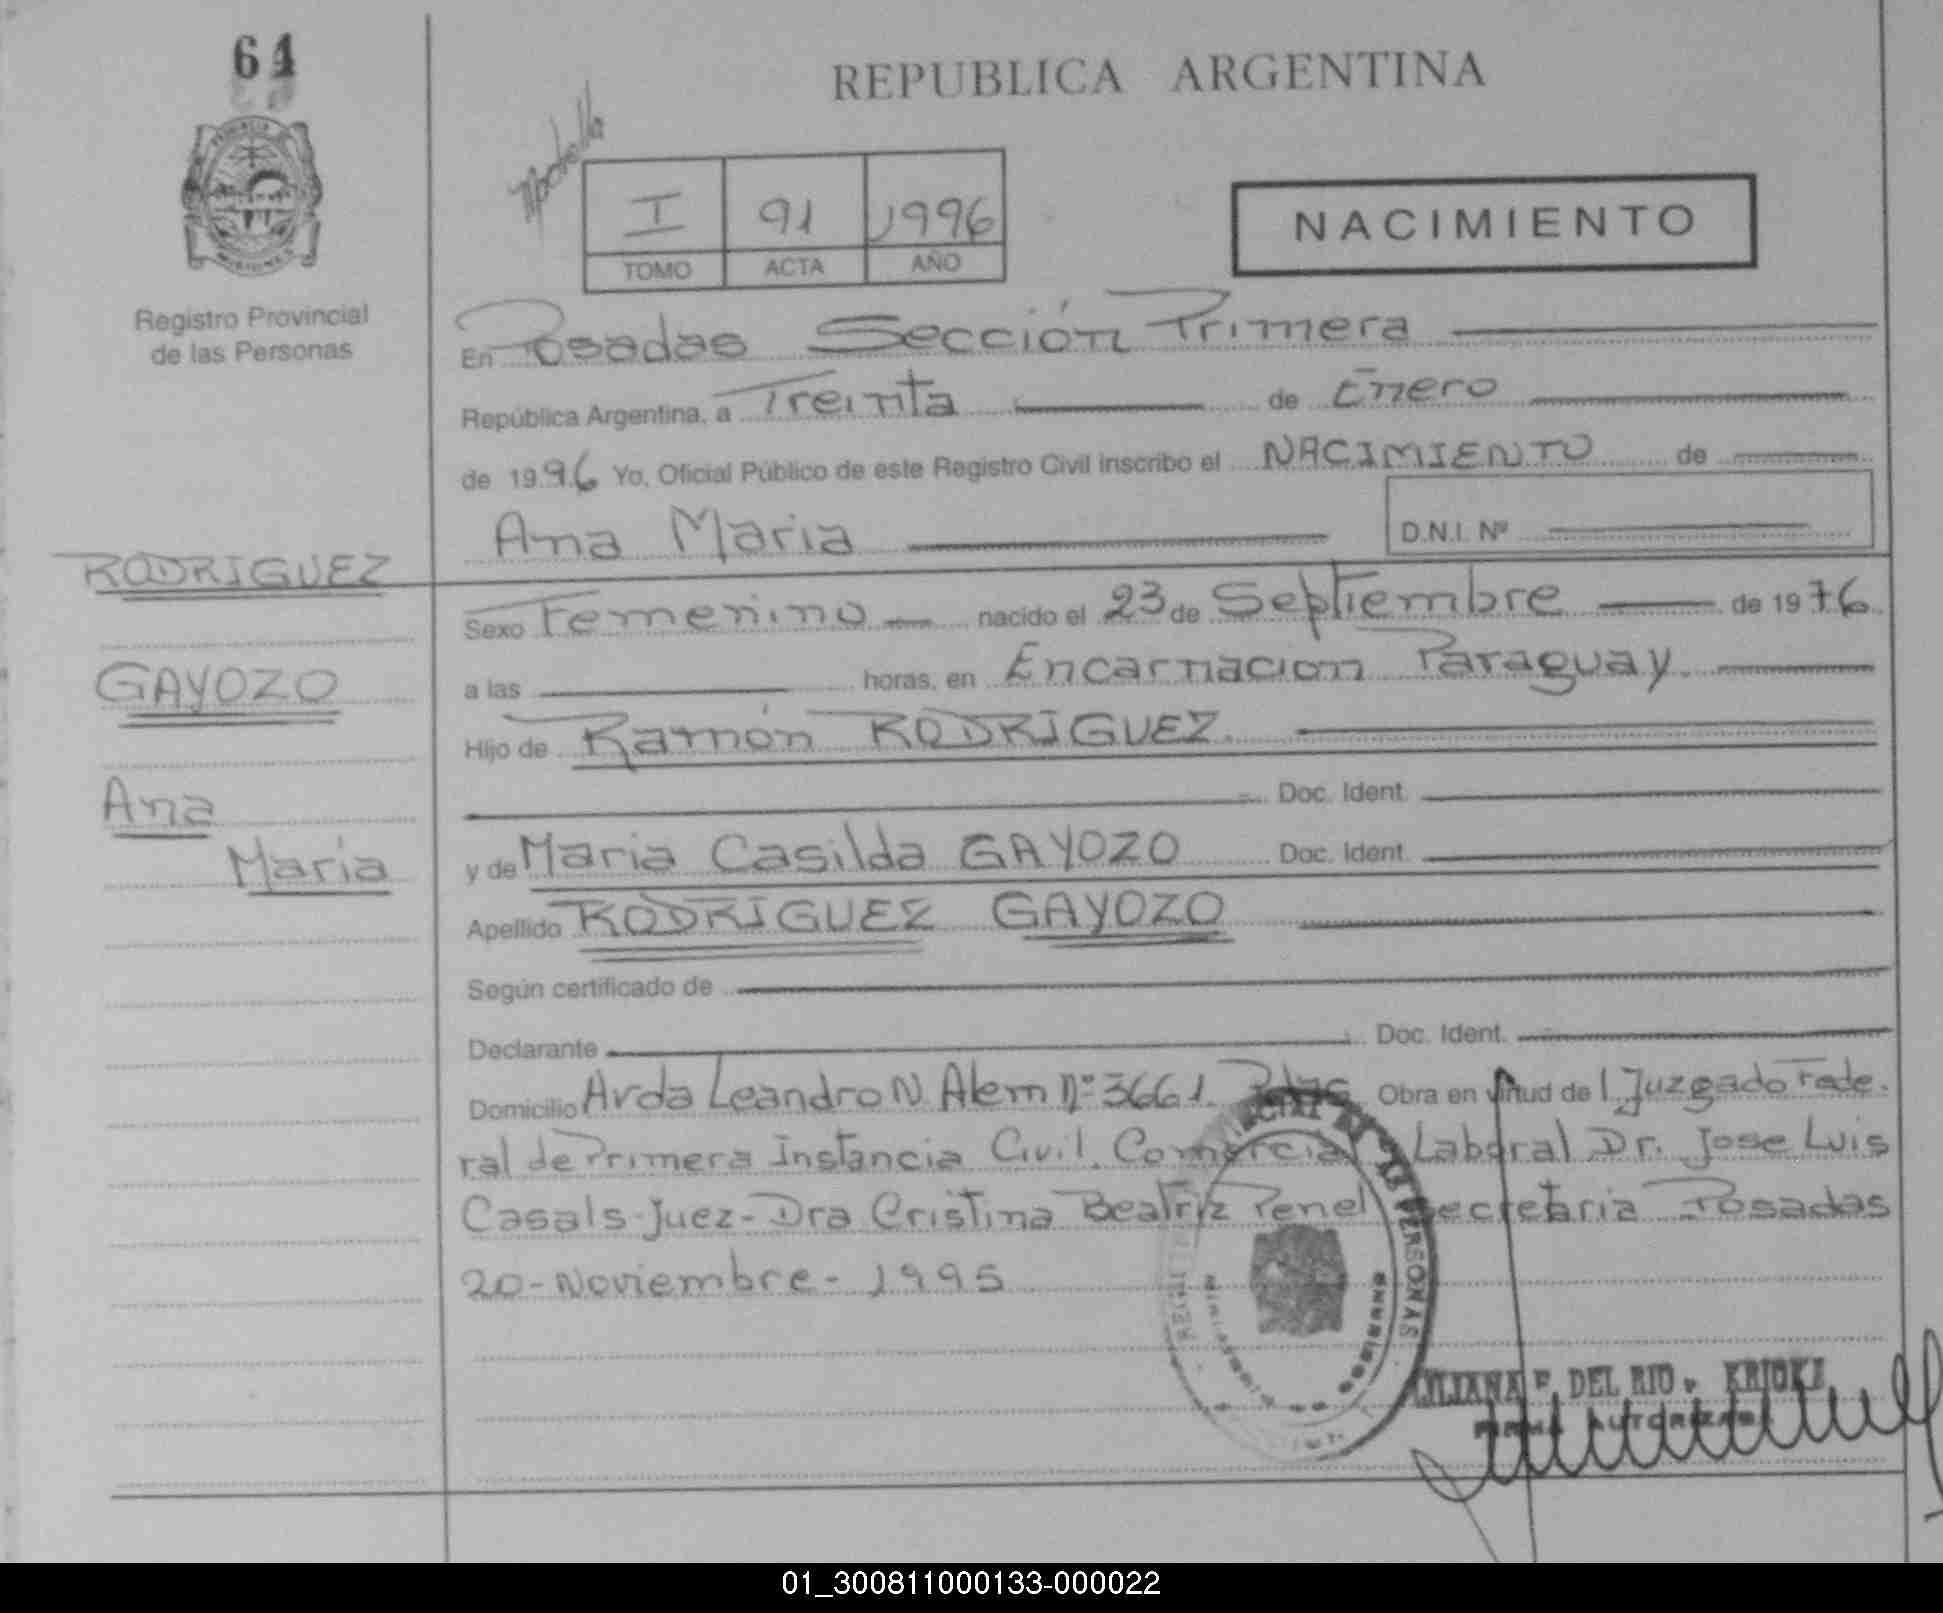 64
REPUBLICA ARGENTINA
I 91 1996
TOMO ACTA AÑO
NACIMIENTO
Registro Provincial
de las Personas
En Posadas Sección Primera
República Argentina, a Treinta de Enero
de 1996 Yo, Oficial Público de este Registro Civil inscribo el NACIMIENTO de
Ana Maria
D.N.I. Nº
RODRIGUEZ
GAYOZO
Ana
Maria
Sexo Femenino nacido el 23 de Septiembre de 1976
a las horas, en Encarnacion Paraguay.
Hijo de Ramón RODRIGUEZ.
Doc. Ident.
y de Maria Casilda GAYOZO Doc. Ident.
Apellido RODRIGUEZ GAYOZO
Según certificado de
Declarante Doc. Ident.
Domicilio Avda Leandro N. Alem Nº 3661. Pdas Obra en virtud de Juzgado Fede-
ral de Primera Instancia Civil. Comercial Laboral Dr. Jose Luis
Casals-Juez-Dra Cristina Beatriz Penel Secretaria Posadas
20-Noviembre-1995
PERSONAS
LILIANA F. DEL RIO
FIRMA AUTORIZADA
01_300811000133-000022